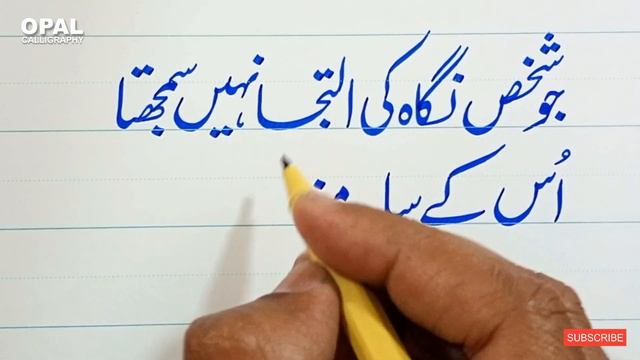 OPAL
CALLIGRAPHY
جو شخص نگاہ کی التجا نہیں سمجھتا
اُس کے سا
SUBSCRIBE